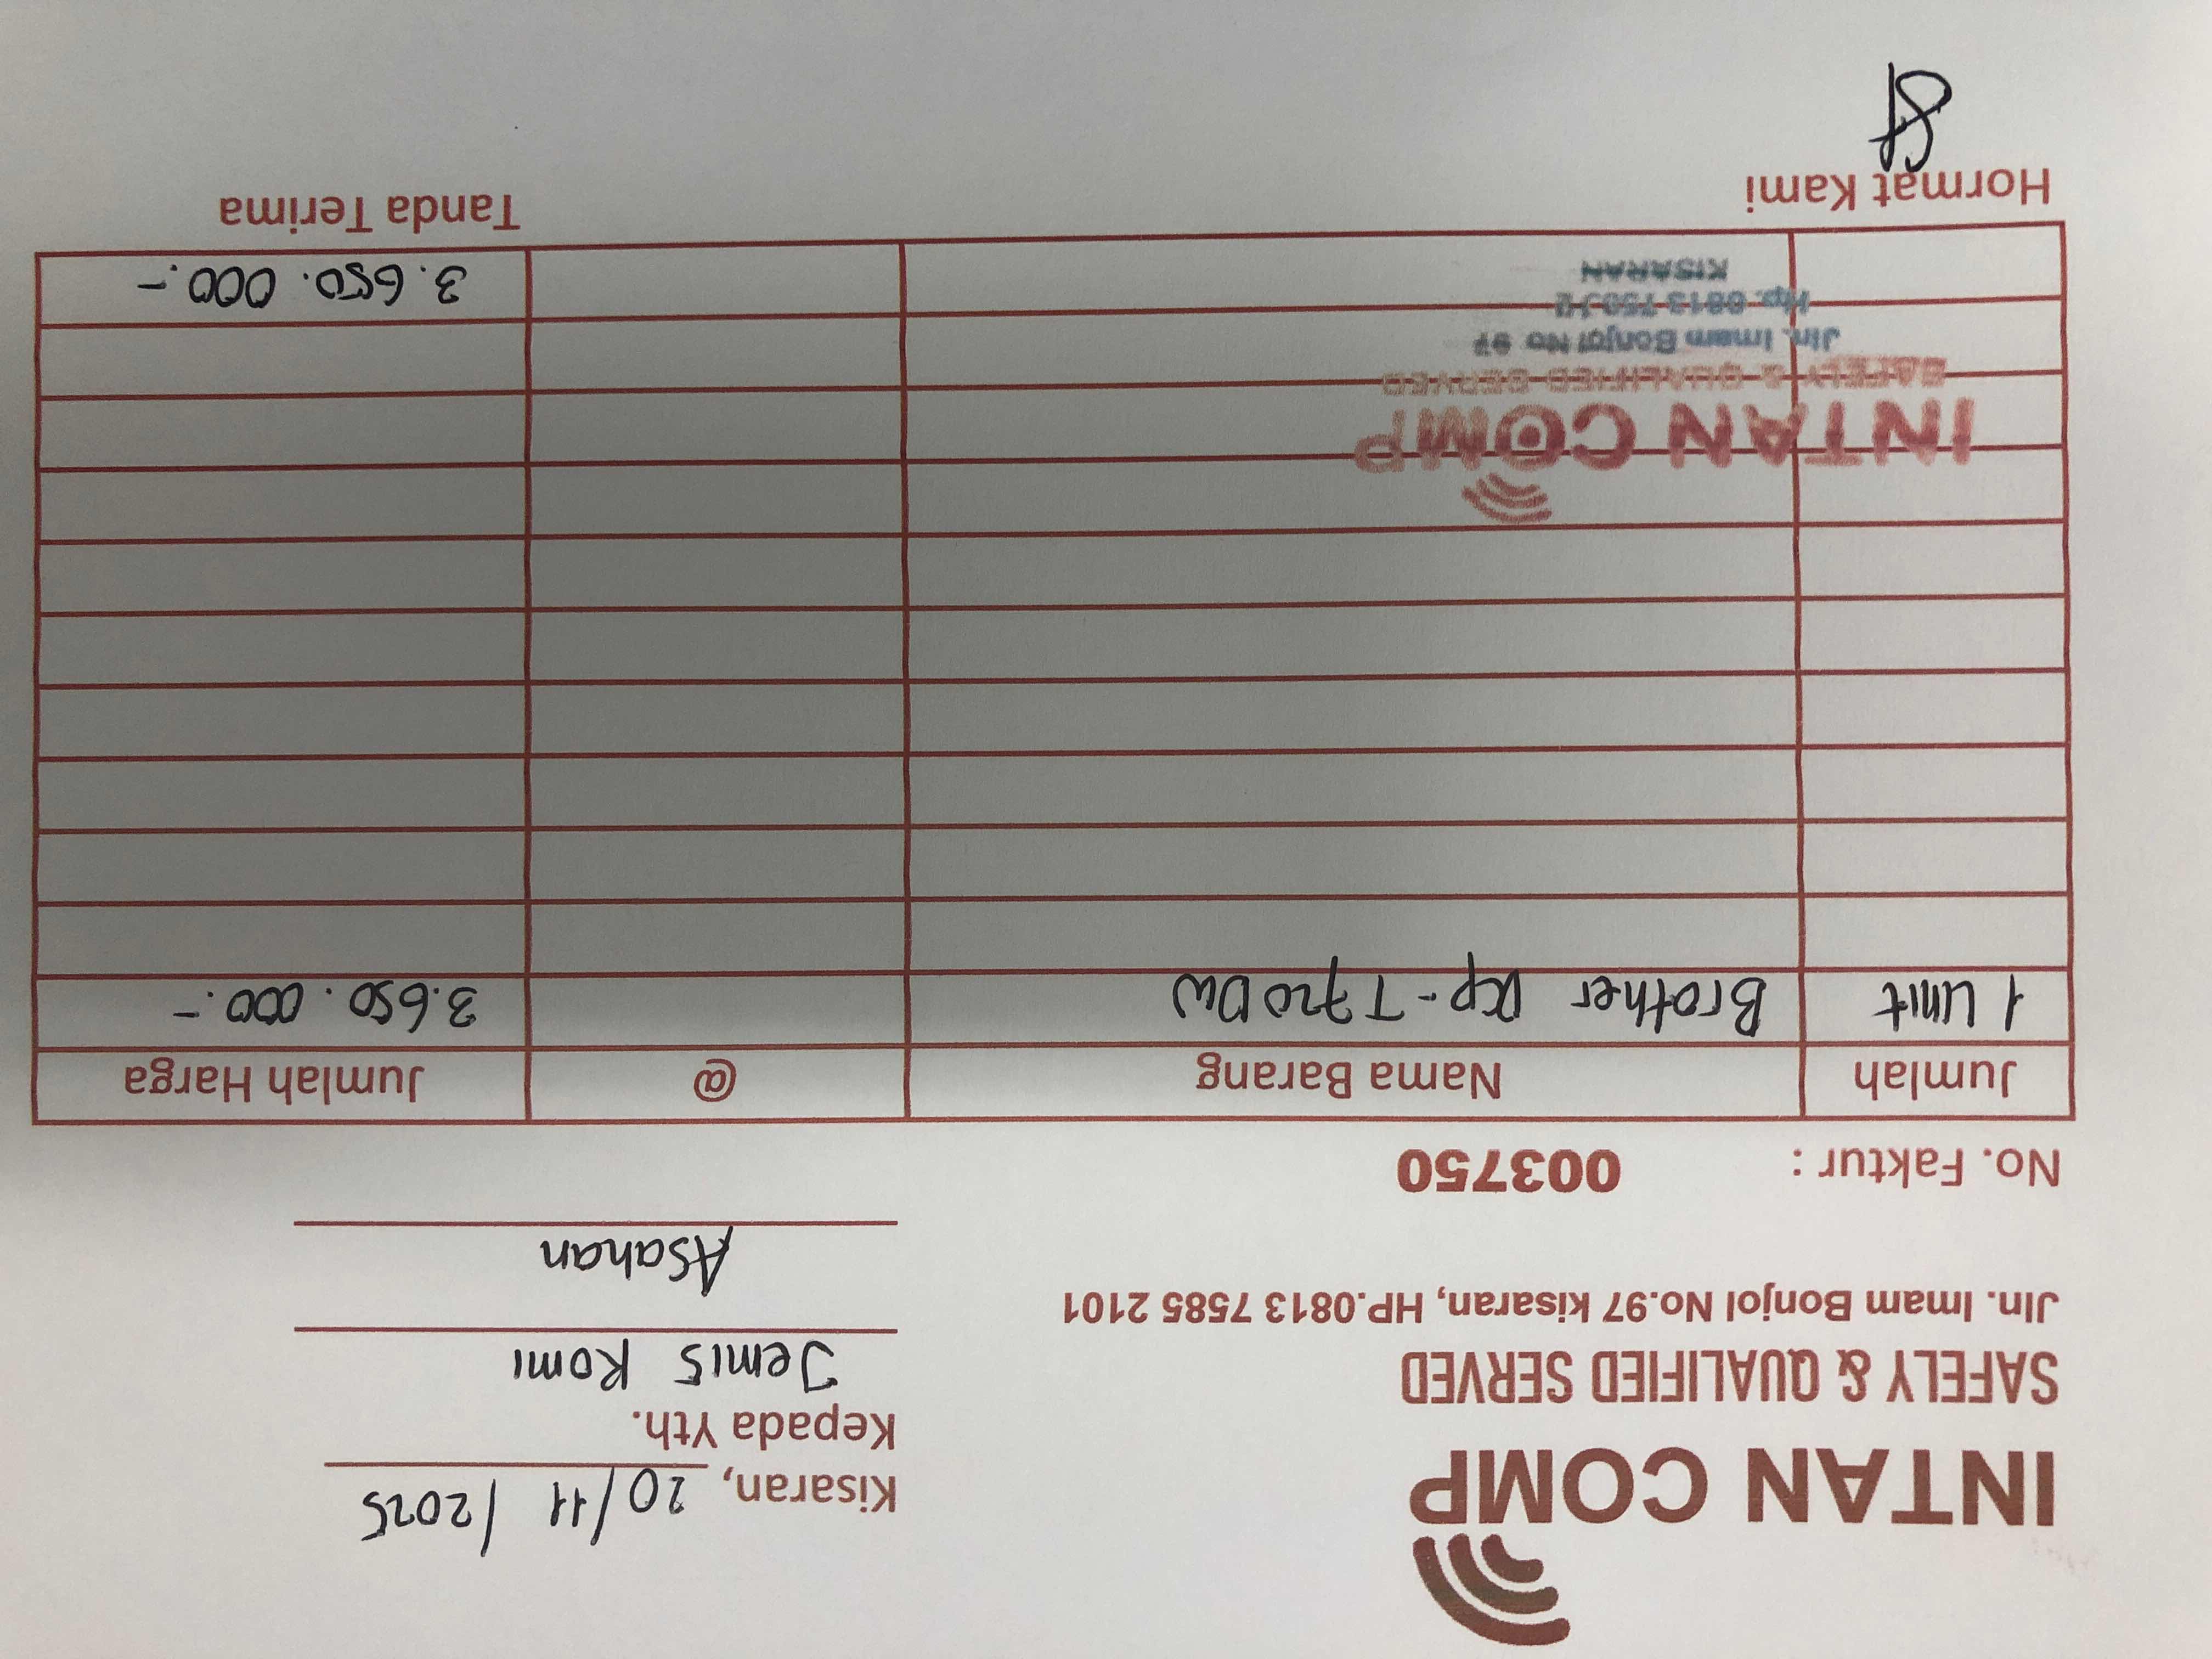 INTAN COMP
SAFELY & QUALIFIED SERVED
Jln. Imam Bonjol No.97 kisaran, HP.0813 7585 2101
Kisaran, 20/11/2025
Kepada Yth.
Jemis Romi
Asahan
No. Faktur : 003750
Jumlah Nama Barang @ Jumlah Harga
1 Unit Brother Dcp-T720DW 3.650.000.-
INTAN COMP
SAFELY & QUALIFIED SERVED
Jln. Imam Bonjol No 97
Hp. 0813 75
KISARAN
3.650.000.-
Hormat Kami Tanda Terima